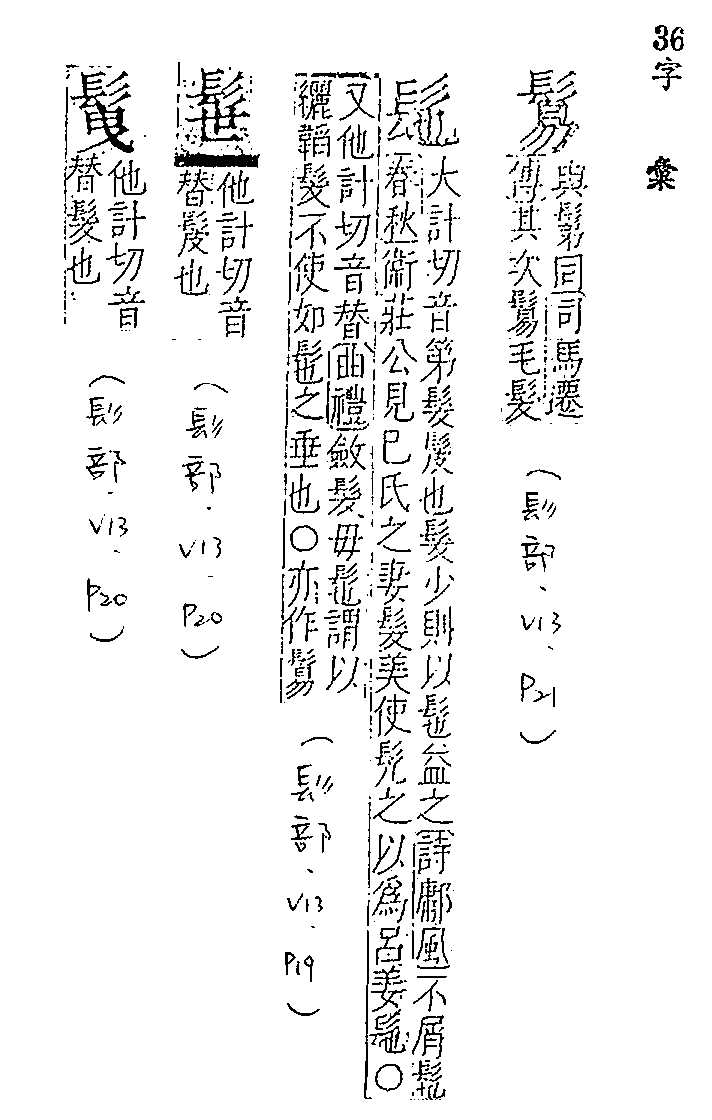 36字 彙
鬄
與鬀同司馬遷
傳其次鬄毛髮
(髟部、V13、P21)
髢
大計切音第髮髲也髮少則以髢益之詩鄘風不屑髢
春秋衞莊公見已氏之妻髮美使髠之以爲呂姜髢○
又他計切音替曲禮斂髮毋髢謂以
纚韜髮不使如髢之垂也○亦作鬄
(髟部、V13、P19)
他計切音
替髲也
(髟部、V13、P20)
他計切音
替髮也
(髟部、V13、P20)